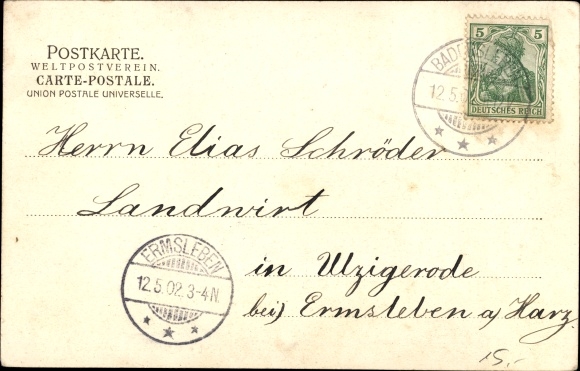 POSTKARTE.
WELTPOSTVEREIN.
CARTE-POSTALE.
UNION POSTALE UNIVERSELLE.
5 5
DEUTSCHES REICH
12.5.
Herrn Elias Schröder
Landwirt
in Ulzigerode
bei Ermsleben a/Harz.
ERMSLEBEN
12.5.02.3-4N.
15,-